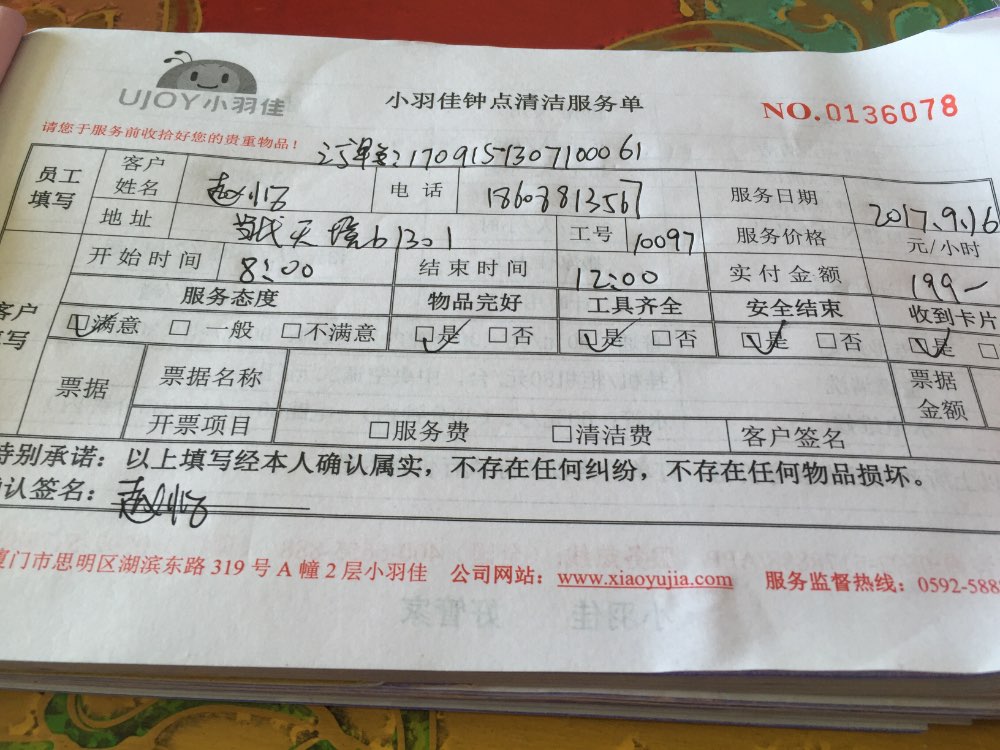 UJOY小羽佳
小羽佳钟点清洁服务单
NO.0136078
请您于服务前收拾好您的贵重物品！
1709151307100061
员工填写 客户姓名 赵小 电话 服务日期 2017.9.16
地址 天境 1301 工号 10097 服务价格 元/小时
开始时间 8:00 结束时间 12:00 实付金额 199-
客户填写 服务态度 物品完好 工具齐全 安全结束 收到卡片
满意 □ 一般 □不满意 是 □否 是 □否 是 □否 是 □
票据 票据名称 票据金额
开票项目 □服务费 □清洁费 客户签名
特别承诺：以上填写经本人确认属实，不存在任何纠纷，不存在任何物品损坏。
确认签名：赵小
厦门市思明区湖滨东路 319 号 A 幢 2 层小羽佳 公司网站：www.xiaoyujia.com 服务监督热线：0592-5888